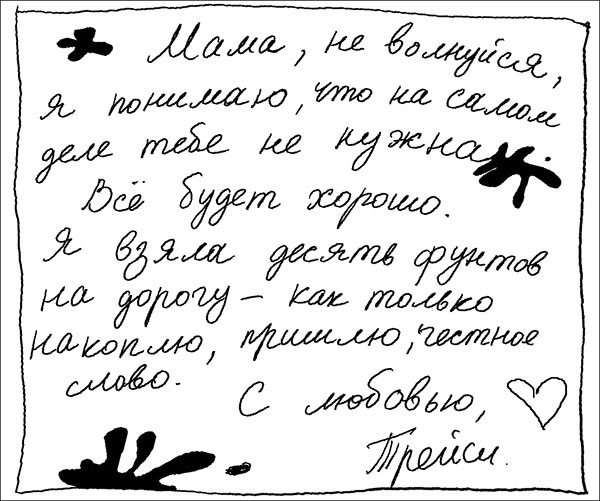 Мама, не волнуйся,
я понимаю, что на самом
деле тебе не нужна.
Всё будет хорошо.
Я взяла десять фунтов
на дорогу – как только
накоплю, пришлю, честное
слово.
С любовью,
Трейси.